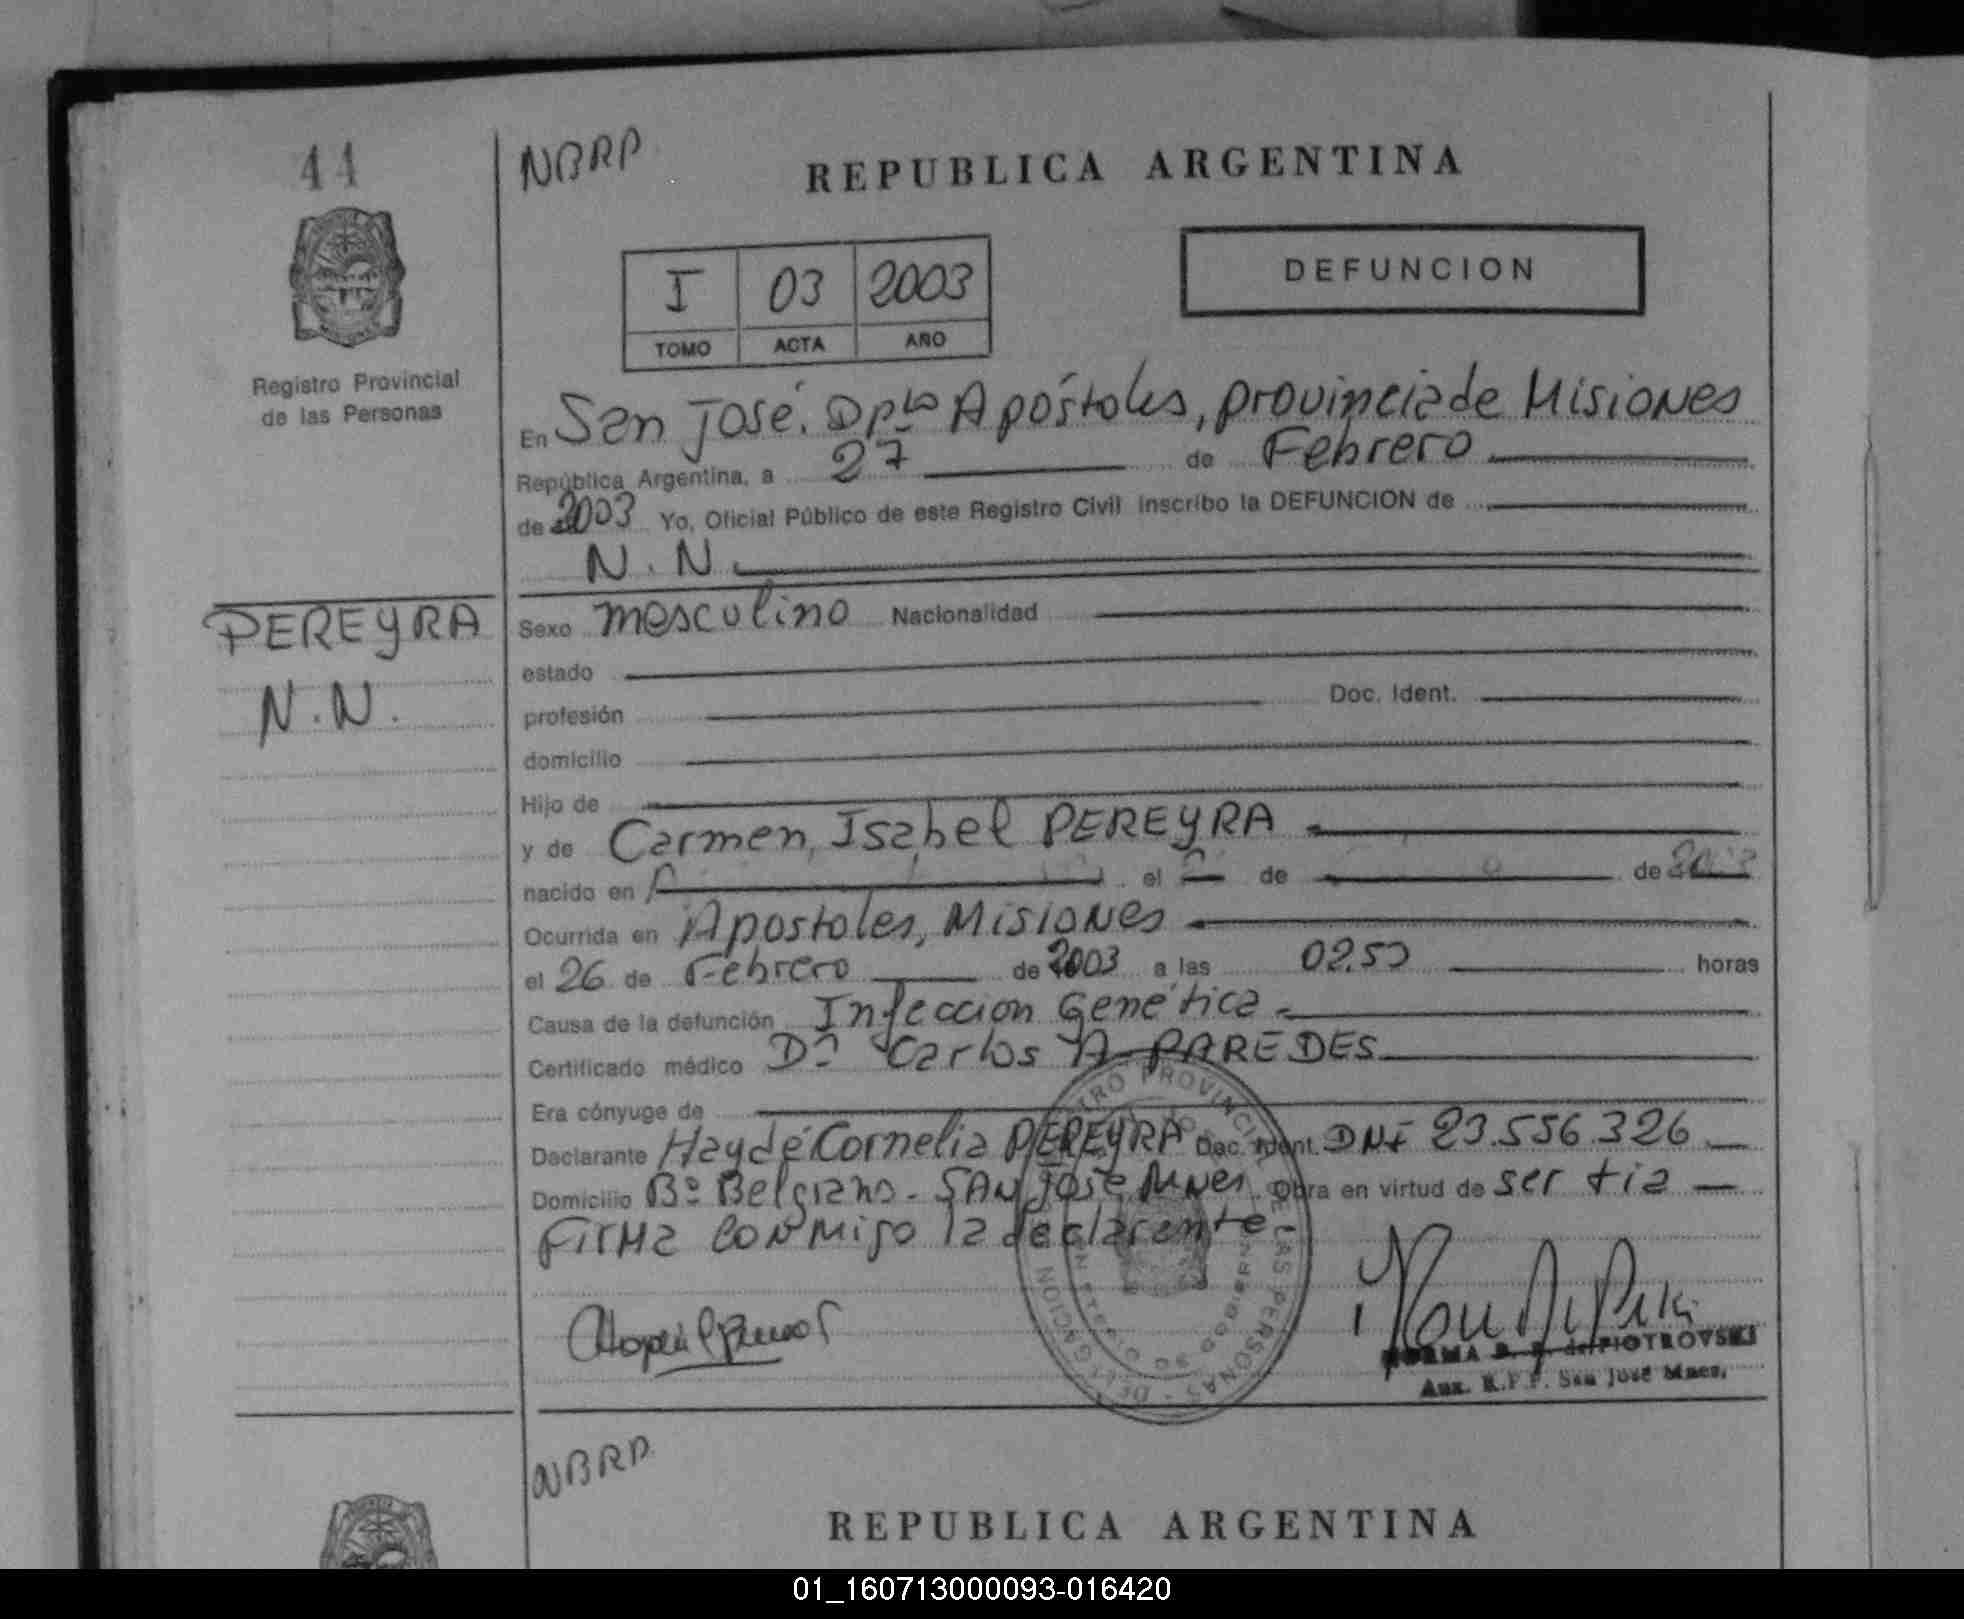 44
NBRP
REPUBLICA ARGENTINA
I 03 2003
TOMO ACTA AÑO
DEFUNCION
Registro Provincial
de las Personas
En San José. Dpto Apóstoles, provincia de Misiones
República Argentina, a 27 de Febrero
de 2003 Yo, Oficial Público de este Registro Civil inscribo la DEFUNCION de
N. N.
PEREYRA
N.N.
Sexo masculino Nacionalidad
estado
profesión Doc. Ident.
domicilio
Hijo de
y de Carmen, Isabel PEREYRA
nacido en el de de 2003
Ocurrida en Apostoles, Misiones
el 26 de Febrero de 2003 a las 02.50 horas
Causa de la defunción Infeccion Genética
Certificado médico Dº Carlos A PAREDES
Era cónyuge de
Declarante Haydé Cornelia PEREYRA Doc. Ident. DNI 23.556.326
Domicilio Bº Belgrano - SAN José, Mnes. Obra en virtud de ser tia
Firma conmigo la declarante.
REGISTRO PROVINCIAL DE LAS PERSONAS - DELEGACION
NORMA B. R. de PIOTROVSKI
Aux. R.P.P. San José Mnes.
NBRP
REPUBLICA ARGENTINA
01_160713000093-016420